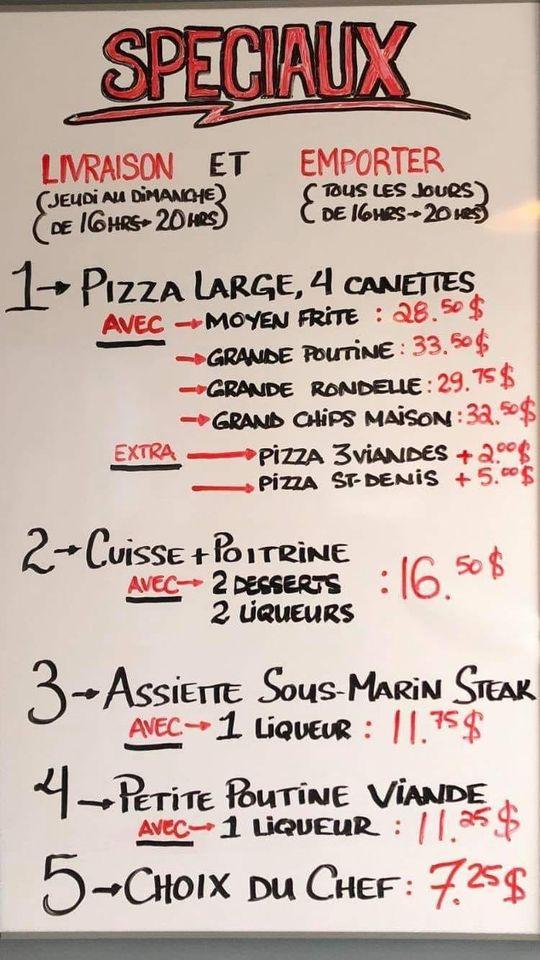 SPECIAUX
LIVRAISON ET EMPORTER
(JEUDI AU DIMANCHE) (TOUS LES JOURS)
(DE 16HRS→20HRS) (DE 16HRS→20HRS)
1→PIZZA LARGE, 4 CANETTES
AVEC →MOYEN FRITE : 28.50$
→GRANDE POUTINE : 33.50$
→GRANDE RONDELLE : 29.75$
→GRAND CHIPS MAISON : 32.50$
EXTRA →PIZZA 3 VIANDES + 2.00$
→PIZZA ST-DENIS + 5.00$
2→CUISSE + POITRINE
AVEC→ 2 DESSERTS : 16.50$
2 LIQUEURS
3→ASSIETTE SOUS-MARIN STEAK
AVEC→ 1 LIQUEUR : 11.75$
4→PETITE POUTINE VIANDE
AVEC→ 1 LIQUEUR : 11.25$
5→CHOIX DU CHEF : 7.25$